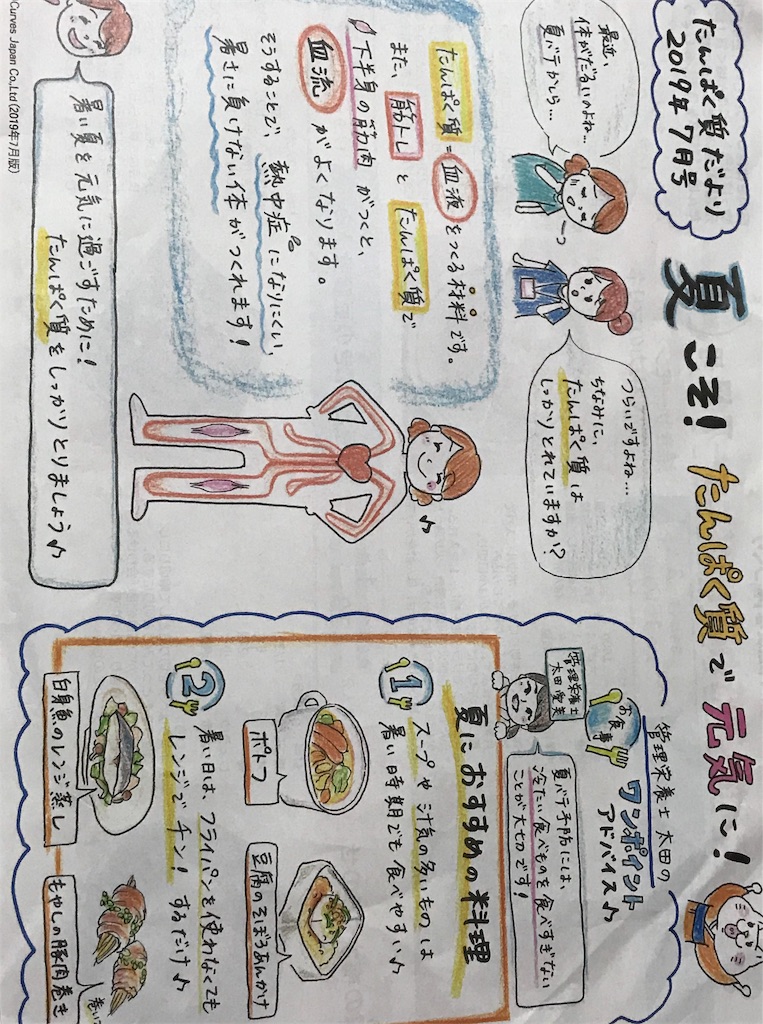 たんぱく質だより
2019年7月号
夏こそ!たんぱく質で元気に!
最近、
体がだるいのよね…
夏バテかしら…
つらいですよね…
ちなみに、
たんぱく質は
しっかりとれていますか?
たんぱく質=血液をつくる材料です。
また、筋トレとたんぱく質で
下半身の筋肉がつくと、
血流がよくなります。
そうすることで、熱中症になりにくい、
暑さに負けない体がつくれます!
暑い夏を元気に過ごすために!
たんぱく質をしっかりとりましょう♪
©Curves Japan Co.,Ltd(2019年7月版)
管理栄養士 太田の
お食事
ワンポイント
アドバイス♪
管理栄養士
太田
夏バテ予防には、
冷たい食べものを食べすぎない
ことが大切です!
夏におすすめの料理
1
スープや汁気の多いものは
暑い時期でも食べやすい♪
ポトフ
豆腐のそぼろあんかけ
2
暑い日は、フライパンを使わなくても
レンジでチン!するだけ♪
白身魚のレンジ蒸し
もやしの豚肉巻き